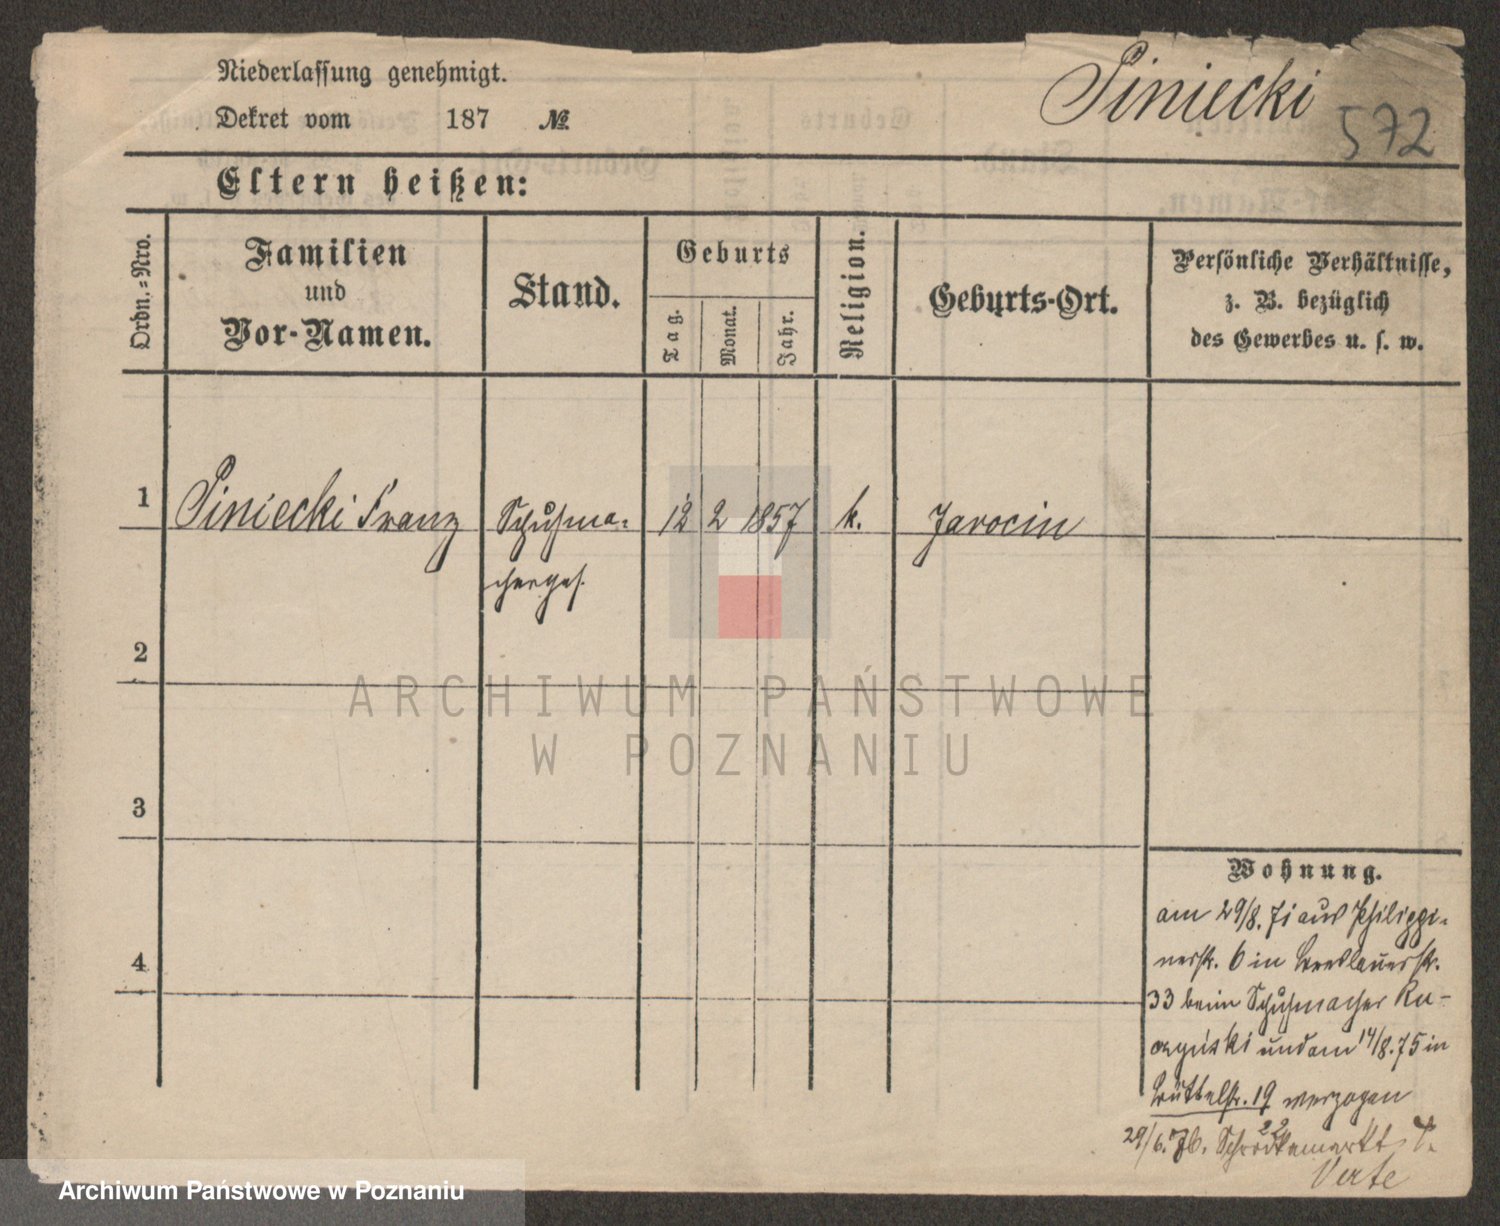 Niederlassung genehmigt.
Dekret vom 187 №
Piniecki 572
Eltern heißen:
Ordn.-Nro.
Familien
und
Vor-Namen.
Stand.
Geburts
Tag.
Monat.
Jahr.
Religion.
Geburts-Ort.
Persönliche Verhältnisse,
z. B. bezüglich
des Gewerbes u. s. w.
1 Piniecki Franz Schuhma- 12 2 1857 k. Jarocin
cherges.
2
3
4
Wohnung.
am 29/8. 71 aus Philippi-
nerstr. 6 in Breslauerstr.
33 beim Schuhmacher
und am 14/8. 75 in
Büttelstr. 19 verzogen
29/6. 76. Schrodkamarkt 22
Verte
ARCHIWUM PAŃSTWOWE
W POZNANIU
Archiwum Państwowe w Poznaniu